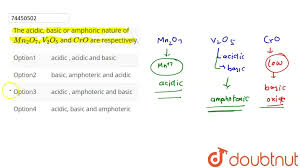 74450502
The acidic, basic or amphoric nature of
Mn₂O₇, V₂O₅ and CrO are respectively.
Option1 acidic , acidic and basic
Option2 basic, amphoteric and acidic
Option3 acidic , amphoteric and basic
Option4 acidic, basic and amphoteric
Mn₂O₇ V₂O₅ CrO
Mn⁺⁷ acidic low
basic
acidic basic
amphoteric oxide
doubtnut